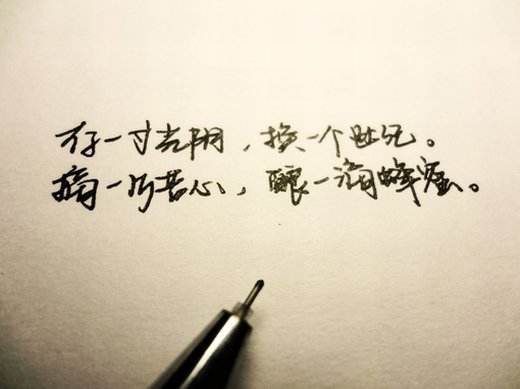 存一寸光阴，换一个世纪。
摘一片苦心，酿一滴蜂蜜。